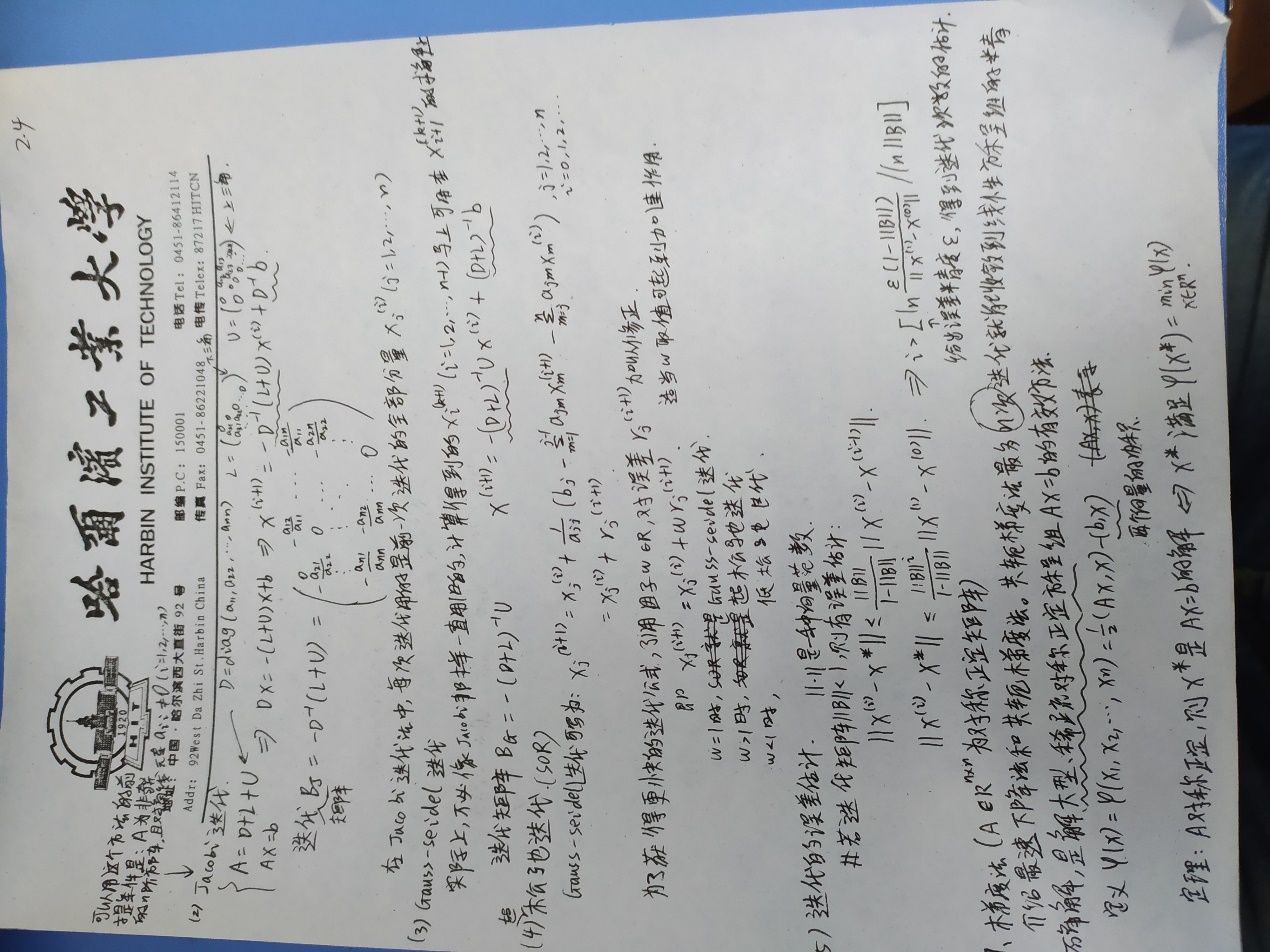 2.4
哈爾濱工業大學
HARBIN INSTITUTE OF TECHNOLOGY
1920
HIT
中国·哈尔滨西大直街 92 号 邮编 P.C: 150001 电话 Tel: 0451-86412114
Addr: 92West Da Zhi St.Harbin China 传真 Fax: 0451-86221048 电传 Telex: 87217HITCN
可以用这个方法的前
提条件是: A为非奇异
的n阶矩阵, 且对角线元素 aii≠0 (i=1,2,…,n)
(2) Jacobi 迭代.
{ A=D+L+U D=diag(a11, a22, …, ann) L= 下三角 U= 上三角.
AX=b ⇒ DX=-(L+U)X+b ⇒ X^(i+1) = -D^-1(L+U)X^(i) + D^-1 b.
迭代矩阵 BJ = -D^-1(L+U) = ( 0 -a12/a11 … -a1n/a11
-a21/a22 0 … -a2n/a22
⋮ ⋮ ⋮
-an1/ann -an2/ann … 0 )
在 Jacobi 迭代法中, 每次迭代用的是前一次迭代的全部分量 xj^(i) (j=1,2,…,n)
(3) Gauss-seidel 迭代
实际上, 不必像 Jacobi 那样一直用旧的, 计算得到的 xi^(k+1) (i=1,2,…,n-1) 马上可用在 x_{i+1}^(k+1) 的求解上
X^(i+1) = -(D+L)^-1 U X^(i) + (D+L)^-1 b
迭代矩阵 BG = -(D+L)^-1 U
(4) 超松弛迭代. (SOR)
Gauss-seidel迭代可写为: xj^(i+1) = xj^(i) + 1/ajj (bj - Σ_{m=1}^{j-1} ajm xm^(i+1) - Σ_{m=j}^{n} ajm xm^(i)), j=1,2,…,n i=0,1,2,…
= xj^(i) + rj^(i+1)
为了获得更快的迭代公式, 引用因子 w∈R, 对误差 rj^(i+1) 加以修正.
即 xj^(i+1) = xj^(i) + w rj^(i+1) 适当w取值可起到加速作用.
w=1时, Gauss-seidel 迭代.
w>1时, 超松弛迭代
w<1时, 低松弛迭代.
(5) 迭代的误差估计. ||·|| 是种向量范数.
并若迭代矩阵||B||<1, 则有误差估计:
||X^(i)-X*|| ≤ ||B||/(1-||B||) ||X^(i)-X^(i-1)||.
||X^(i)-X*|| ≤ ||B||^i/(1-||B||) ||X^(1)-X^(0)||. ⇒ i > [ln ε(1-||B||)/||X^(1)-X^(0)|| / ln||B||]
给出误差精度 ε, 得到迭代次数的估计.
、梯度法 (A∈R^n×n 为对称正定矩阵)
介绍最速下降法和共轭梯度法。共轭梯度法最多n次迭代就能收敛到线性方程组的
解, 是解大型、稀疏对称正定方程组 AX=b 的有效方法.
定义 φ(x) = φ(x1, x2, …, xn) = 1/2 (AX, X) - (b, X)
定理: A对称正定, 则 X* 是 AX=b 的解 ⇔ X* 满足 φ(X*) = min_{X∈R^n} φ(X)